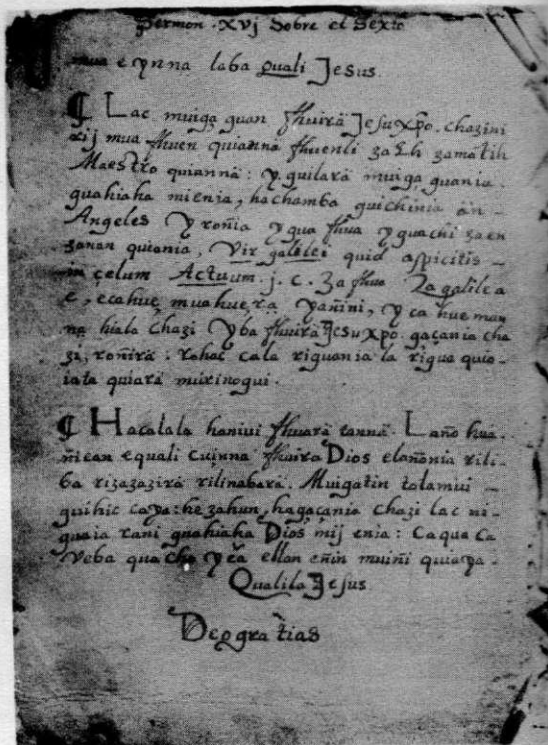 Sermon .XVj Sobre el Sexto
mua e ynna laba Quali Jesus.
¶ Lac muiga guan fhuirã Jesuxpõ. chazini
xij mua fhuen quianna fhuenli za Lh zamãtih
Maestro quiannã: y guilarã muiga guania.
guahiaha mienia, hachamba guichinia an-
Angeles y roñia y gua fhua yguachi zaen
zanan quiania, Vir galilei quid aspicitis-
in çelum Actuum. j. c. Za fhua Za galilea
e, ecahue, muahuera yañini, y ca hue mau
na hiala Chazi yba fhuirã Jesuxpõ. gaçania cha
zi, roñirã: rohac cala riguania la rigua quio-
iata quiarã murinogui.
¶ Hacalala haniui fhuarã tannã. Laño huã-
ñican equali cuinna fhuira Dios elañonia rili-
ba rizazazirã rilinabarã. Muigatin tolamui-
guihic caya: he zahun, hagaçania chazi lac ni-
guaia rani guahiaha Dios mij enia: Caqua Ca
veba quacha y ca ellan eñin muiñi quiaya-
Qualila Jesus
Deo gratias